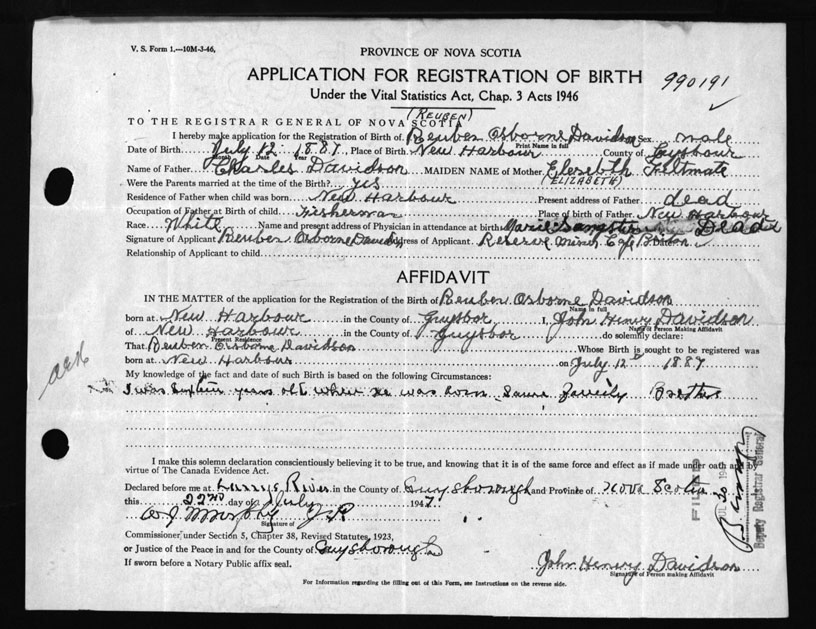 V. S. Form 1.---10M-3-46,
PROVINCE OF NOVA SCOTIA
APPLICATION FOR REGISTRATION OF BIRTH
990191
Under the Vital Statistics Act, Chap. 3 Acts 1946
(REUBEN)
TO THE REGISTRAR GENERAL OF NOVA SCOTIA
I hereby make application for the Registration of Birth of Reuben Osborne Davidson Sex male
Print Name in full
Date of Birth July 12 1887 Place of Birth New Harbour County of Guysbour
Month Date Year
Name of Father Charles Davidson MAIDEN NAME of Mother Elesebth Feltmate
(ELIZABETH)
Were the Parents married at the time of the Birth? yes
Residence of Father when child was born New Harbour Present address of Father dead
Occupation of Father at Birth of child Fisherman Place of birth of Father New Harbour
Race White Name and present address of Physician in attendance at birth Dead
Signature of Applicant Reuben Osborne Davidson Address of Applicant Reserve Mines Cape Breton
Relationship of Applicant to child
AFFIDAVIT
IN THE MATTER of the application for the Registration of the Birth of Reuben Osborne Davidson
Name in full
born at New Harbour in the County of Guysbor I, John Henry Davidson
Name of Person Making Affidavit
of New Harbour in the County of Guysbor do solemnly declare:
Present Residence
That Reuben Osborne Davidson Whose Birth is sought to be registered was
born at New Harbour on July 12 1887
My knowledge of the fact and date of such Birth is based on the following Circumstances:
I was years old when he was born Same family Brother
I make this solemn declaration conscientiously believing it to be true, and knowing that it is of the same force and effect as if made under oath and by
virtue of The Canada Evidence Act.
Declared before me at River in the County of Guysborough and Province of Nova Scotia
this 22nd day of July 1947.
W J Murphy J P
Signature of
Commissioner under Section 5, Chapter 38, Revised Statutes, 1923,
or Justice of the Peace in and for the County of Guysborough
If sworn before a Notary Public affix seal.
John Henry Davidson
Signature of Person making Affidavit
For Information regarding the filling out of this Form, see Instructions on the reverse side.
FILED
Deputy Registrar General